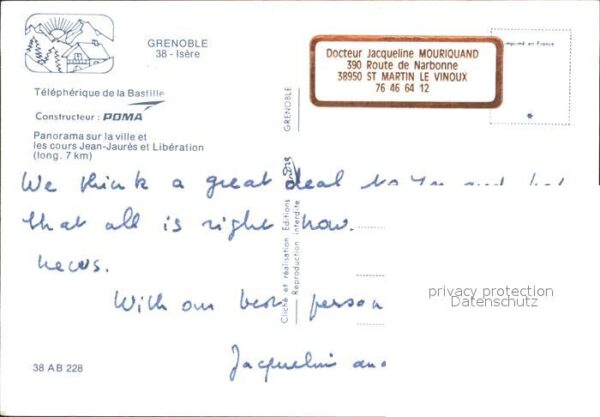 GRENOBLE
38 - Isère
Téléphérique de la Bastille
Constructeur : POMA
Panorama sur la ville et
les cours Jean-Jaurès et Libération
(long. 7 km)
Docteur Jacqueline MOURIQUAND
390 Route de Narbonne
38950 ST MARTIN LE VINOUX
76 46 64 12
Imprimé en France
GRENOBLE
Cliché et réalisation Editions
Reproduction interdite
We think a great deal to you and
that all is right now.
news.
With our best person
Jacqueline and
38 AB 228
privacy protection
Datenschutz